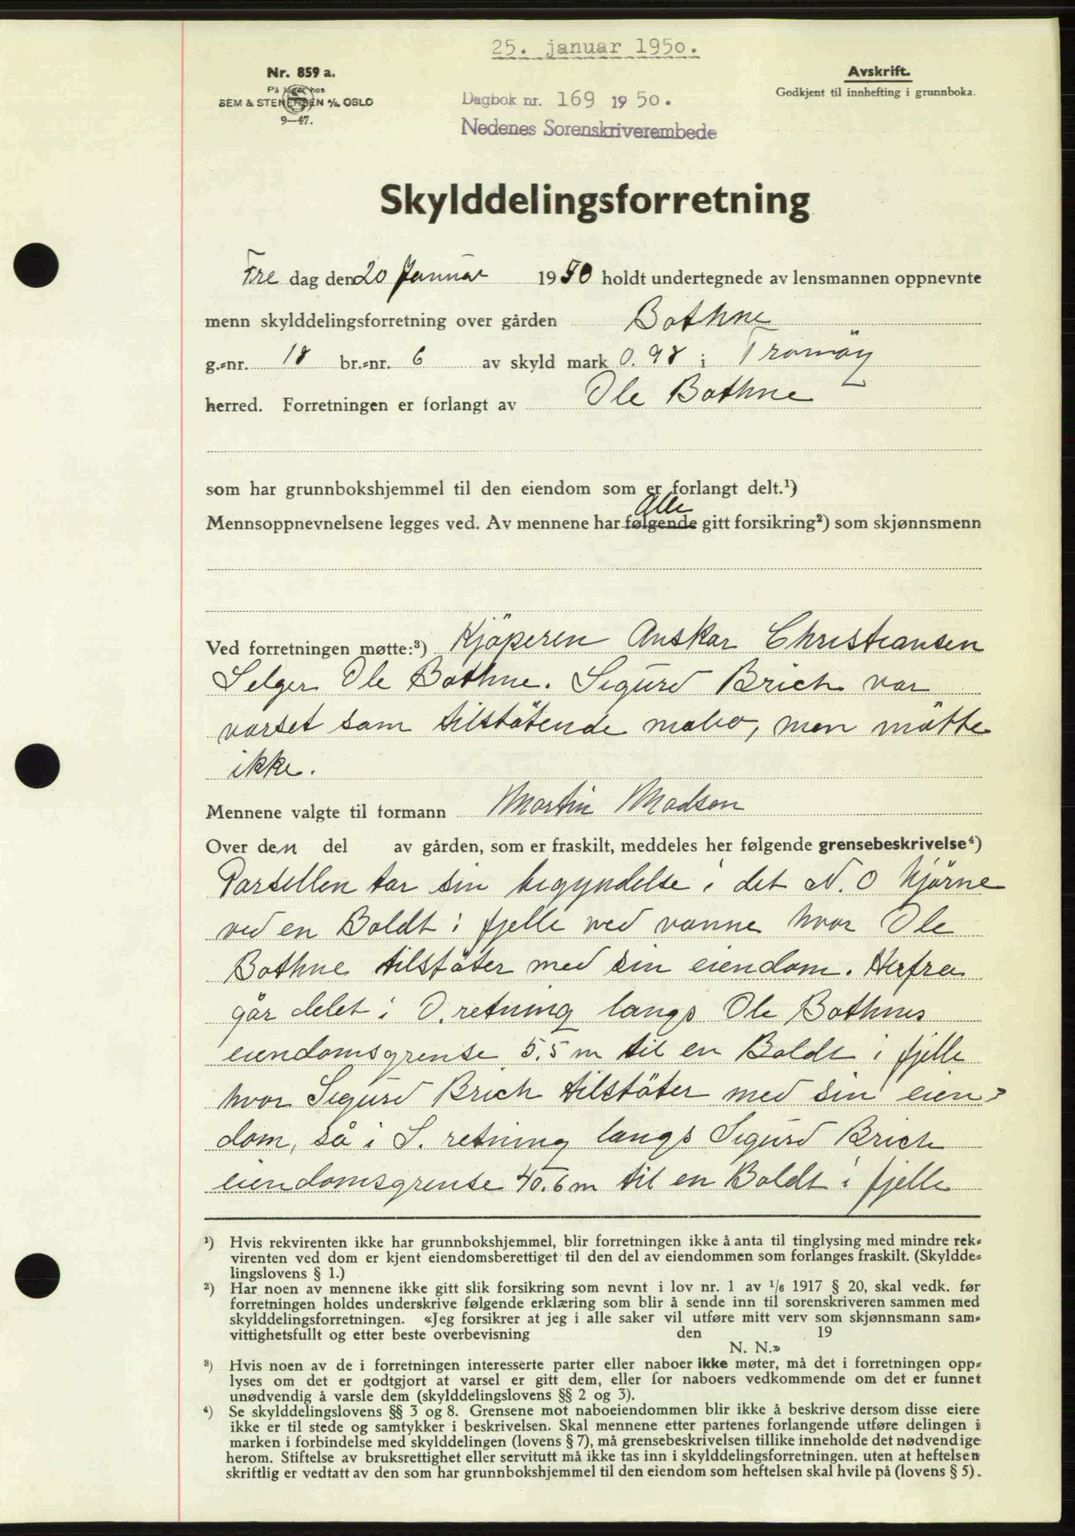 25. januar 1950.
Nr. 859 a.
På lager hos
SEM & STENERSEN A/S OSLO
9—47.
Avskrift.
Godkjent til innhefting i grunnboka.
Dagbok nr. 169 1950.
Nedenes Sorenskriverembede
Skylddelingsforretning
Fre dag den 20 Januar 1950 holdt undertegnede av lensmannen oppnevnte
menn skylddelingsforretning over gården Bothne
g.-nr. 18 br.-nr. 6 av skyld mark 0.98 i Tromöy
herred. Forretningen er forlangt av Ole Bothne
som har grunnbokshjemmel til den eiendom som er forlangt delt.¹)
Alle
Mennsoppnevnelsene legges ved. Av mennene har følgende gitt forsikring²) som skjønnsmenn
Ved forretningen møtte:³) Kjöperen Anskar Christiansen
Selger Ole Bothne. Sigurd Brich var
varset som tilstötende nabo, men mötte
ikke.
Mennene valgte til formann Martin Madsen
Over den del av gården, som er fraskilt, meddeles her følgende grensebeskrivelse⁴)
Parsellen tar sin begyndelse i det N. O hjörne
ved en Boldt i fjelle ved vanne hvor Ole
Bothne tilstöter med sin eiendom. Herfra
går delet i O. retning langs Ole Bothnes
eiendomsgrense 5.5 m til en Boldt i fjelle
hvor Sigurd Brich tilstöter med sin eien-
dom, så i S. retning langs Sigurd Brich
eiendomsgrense 40.6 m til en Boldt i fjelle
¹) Hvis rekvirenten ikke har grunnbokshjemmel, blir forretningen ikke å anta til tinglysing med mindre rek-
virenten ved dom er kjent eiendomsberettiget til den del av eiendommen som forlanges fraskilt. (Skyldde-
lingslovens § 1.)
²) Har noen av mennene ikke gitt slik forsikring som nevnt i lov nr. 1 av 1/6 1917 § 20, skal vedk. før
forretningen holdes underskrive følgende erklæring som blir å sende inn til sorenskriveren sammen med
skylddelingsforretningen. «Jeg forsikrer at jeg i alle saker vil utføre mitt verv som skjønnsmann sam-
vittighetsfullt og etter beste overbevisning den 19
N. N.»
³) Hvis noen av de i forretningen interesserte parter eller naboer ikke møter, må det i forretningen opp-
lyses om det er godtgjort at varsel er gitt dem, eller for naboers vedkommende om det er funnet
unødvendig å varsle dem (skylddelingslovens §§ 2 og 3).
⁴) Se skylddelingslovens §§ 3 og 8. Grensene mot naboeiendommen blir ikke å beskrive dersom disse eiere
ikke er til stede og samtykker i beskrivelsen. Skal mennene etter partenes forlangende utføre delingen i
marken i forbindelse med skylddelingen (lovens § 7), må grensebeskrivelsen tillike inneholde det nødvendige
herom. Stiftelse av bruksrettighet eller servitutt må ikke tas inn i skylddelingsforretningen. uten at heftelsen
skriftlig er vedtatt av den som har grunnbokshjemmel til den eiendom som heftelsen skal hvile på (lovens § 5).